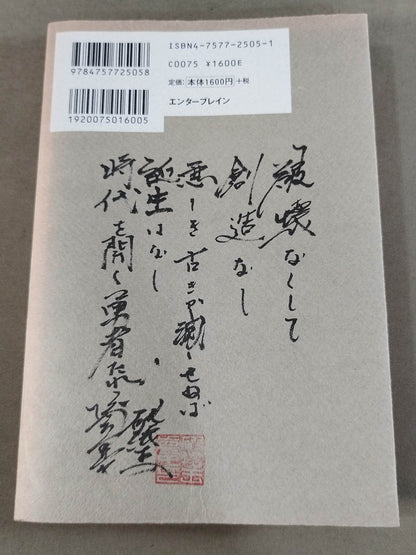 ISBN4-7577-2505-1
C0075 ¥1600E
定価:本体1600円+税
エンターブレイン
9784757725058
1920075016005
破壊なくして
創造なし
悪しき古きが滅せねば
誕生はなし
時代を開く勇者たれ